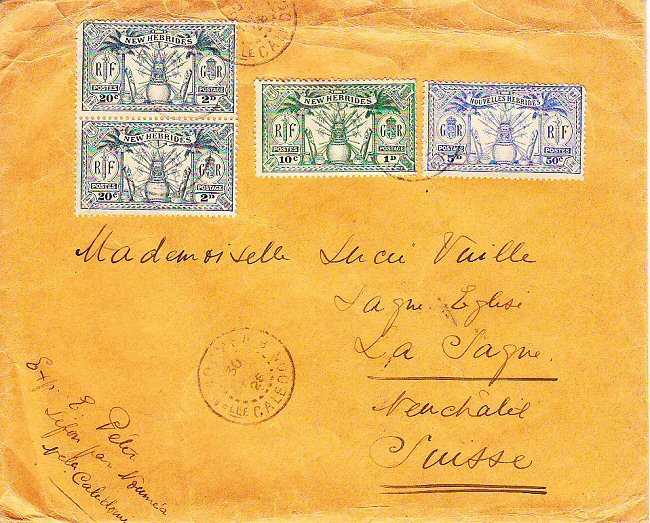 NEW HEBRIDES
RF GR
POSTES POSTAGE
20c 2D
NEW HEBRIDES
RF GR
POSTES POSTAGE
20c 2D
NEW HEBRIDES
RF GR
POSTES POSTAGE
10c 1D
NOUVELLES HEBRIDES
GR RF
POSTAGE POSTES
5D 50c
Mademoiselle Lucie Vuille
Sagne Eglise
La Sagne.
Neuchâtel
Suisse
NOUMEA
30
26
Nelle CALEDON
Exp. E. Péter
Lifou par Nouméa
Nelle Calédonie